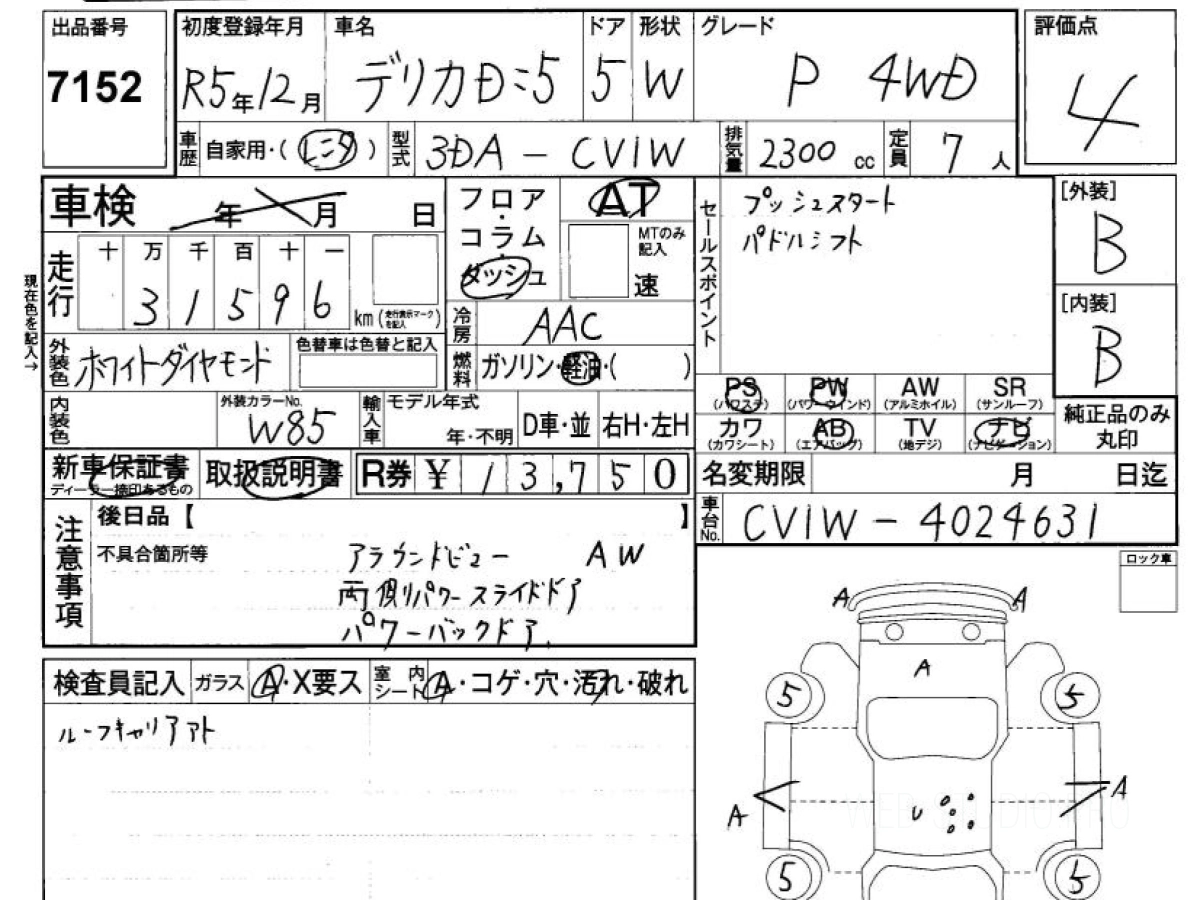 出品番号
7152
初度登録年月
R5年12月
車名
デリカD:5
ドア
5
形状
W
グレード
P 4WD
評価点
4
車歴
自家用・(レンタ)
型式
3DA-CV1W
排気量
2300 cc
定員
7 人
車検
年 月 日
走行
十 万 千 百 十 一
3 1 5 9 6
km(走行表示マークを記入)
現在色を記入→
外装色
ホワイトダイヤモンド
色替車は色替と記入
内装色
外装カラーNo.
W85
輸入車
モデル年式
年・不明
D車・並
右H・左H
フロア・コラム・ダッシュ
AT
MTのみ記入
速
冷房
AAC
燃料
ガソリン・軽油・( )
セールスポイント
プッシュスタート
パドルシフト
PS
(パワステ)
PW
(パワーウインド)
AW
(アルミホイル)
SR
(サンルーフ)
カワ
(カワシート)
AB
(エアバッグ)
TV
(地デジ)
ナビ
(ナビゲーション)
[外装]
B
[内装]
B
純正品のみ
丸印
新車保証書
ディーラー捺印あるもの
取扱説明書
R券 ¥ 13,750
名変期限
月 日迄
車台No.
CV1W-4024631
注意事項
後日品【 】
不具合箇所等
アラウンドビュー AW
両側パワースライドドア
パワーバックドア
ロック車
検査員記入
ガラス
A・X要ス
室内シート
A・コゲ・穴・汚れ・破れ
ルーフキャリアアト
A A
A
5 5
A A
U
5 5